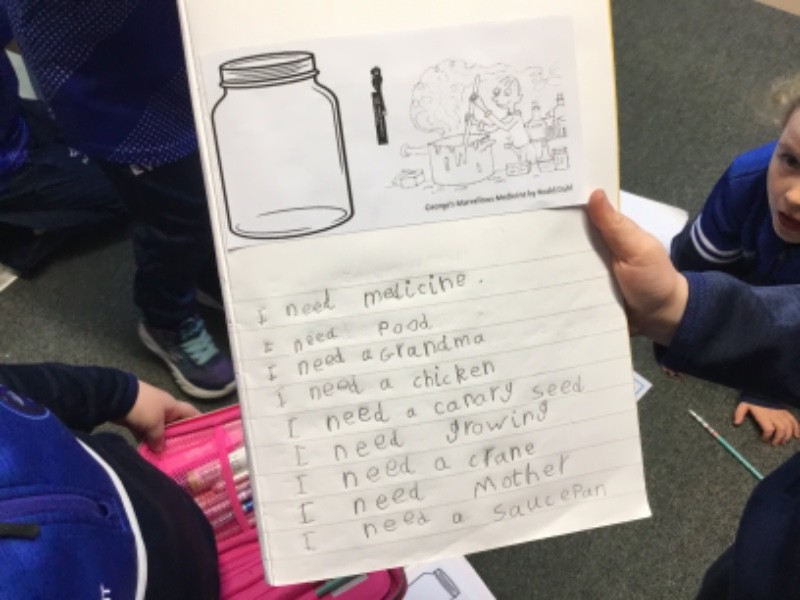 George's Marvellous Medicine by Roald Dahl
I need medicine.
I need Food
I need a Grandma
I need a chicken
I need a canary seed
I need growing
I need a crane
I need Mother
I need a saucepan